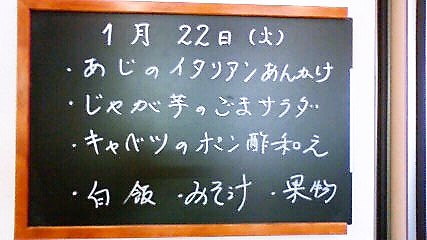 1月 22日(火)
・あじのイタリアンあんかけ
・じゃが芋のごまサラダ
・キャベツのポン酢和え
・白飯 ・みそ汁 ・果物